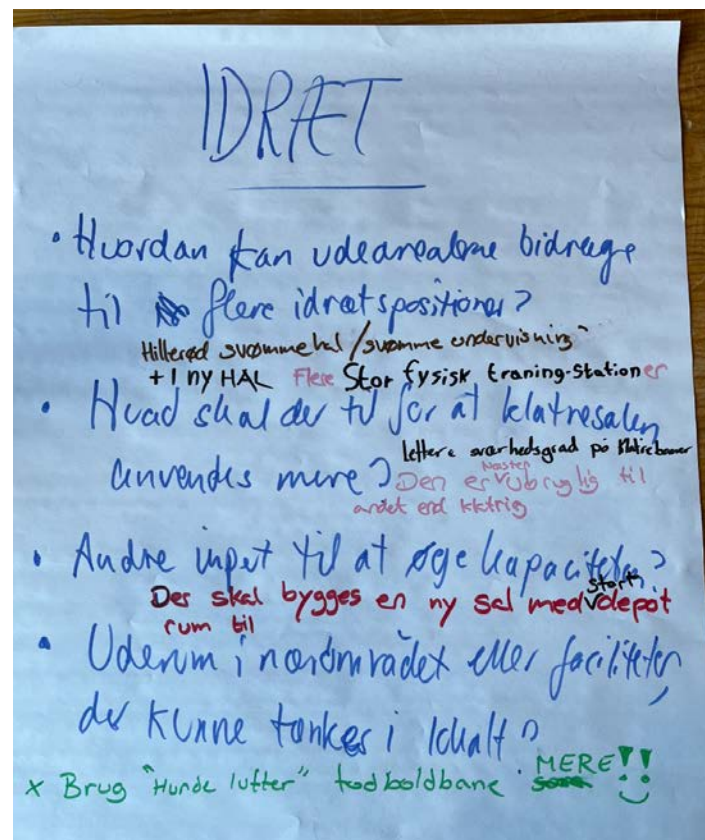 IDRÆT
• Hvordan kan udearealerne bidrage
til flere idrætspositioner?
Hillerød svømmehal / svømme undervisning
+ 1 ny HAL Flere Stor fysisk træning-stationer
• Hvad skal der til for at klatresalen
lettere sværhedsgrad på klatrebaner
anvendes mere? Den er næsten ubruglig til
andet end klatrig
• Andre input til at øge kapaciteten?
Der skal bygges en ny sal med stort depot
rum til
• Uderum i nærområdet eller faciliteter,
der kunne tænkes i lokalt?
x Brug "Hunde lufter" fodboldbane MERE!!